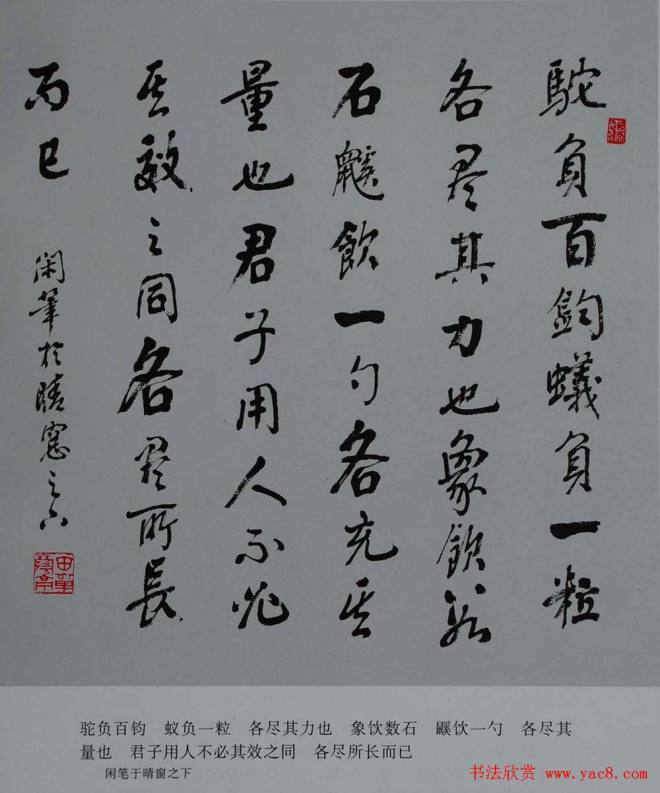 駝負百鈞蟻負一粒
各尽其力也象飲数
石鼷飲一勺各充其
量也君子用人不必
其效之同各尽所長
而已
闲筆於晴窓之下
驼负百钧 蚁负一粒 各尽其力也 象饮数石 鼷饮一勺 各尽其
量也 君子用人不必其效之同 各尽所长而已
闲笔于晴窗之下
书法欣赏 www.yac8.com